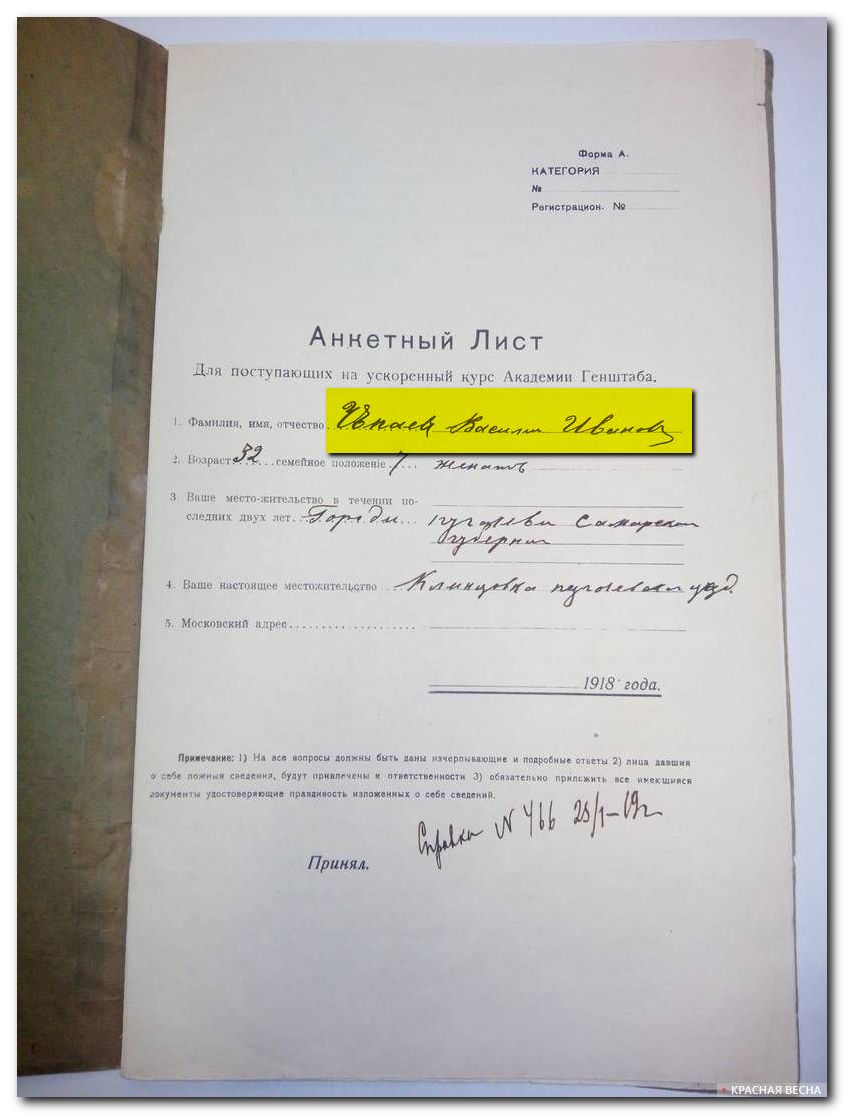 Форма А.
КАТЕГОРИЯ
№
Регистрацион. №
Анкетный Лист
Для поступающих на ускоренный курс Академии Генштаба.
1. Фамилия, имя, отчество. Чепаев Василий Иванов
2. Возраст 32 ... семейное положение ... женатъ
3. Ваше место-жительство в течении по-
следних двух лет. Городи ... Самарской
Губернии
4. Ваше настоящее местожительство ... Клинцовка
5. Московский адрес...................
1918 года.
Примечание: 1) На все вопросы должны быть даны изчерпывающие и подробные ответы 2) лица давшия
о себе ложныя сведения, будут привлечены к ответственности 3) обязательно приложить все имеющияся
документы удостоверяющие правдивость изложенных о себе сведений.
Справка N 466 28/1–19г
Принял.
КРАСНАЯ ВЕСНА